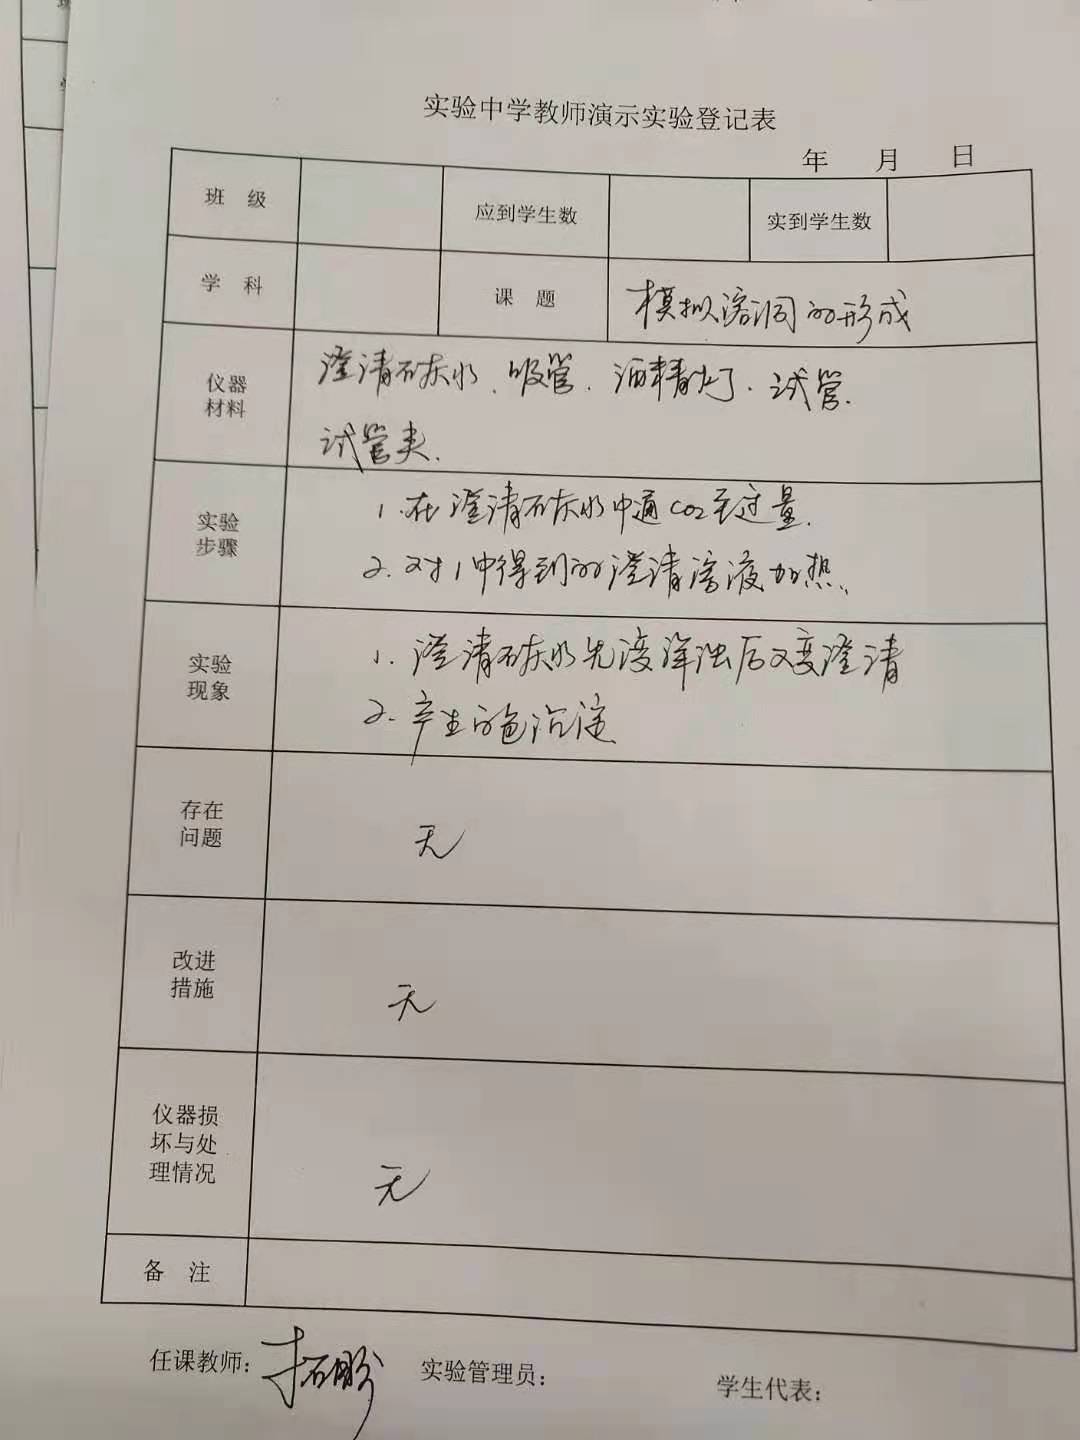 实验中学教师演示实验登记表
年 月 日
班 级 应到学生数 实到学生数
学 科 课 题 模拟溶洞的形成
仪器
材料
澄清石灰水、吸管、酒精灯、试管、
试管夹.
实验
步骤
1.在澄清石灰水中通CO2至过量.
2.对1中得到的澄清溶液加热.
实验
现象
1.澄清石灰水先变浑浊后又变澄清
2.产生白色沉淀
存在
问题
无
改进
措施
无
仪器损
坏与处
理情况
无
备 注
任课教师: 实验管理员: 学生代表: